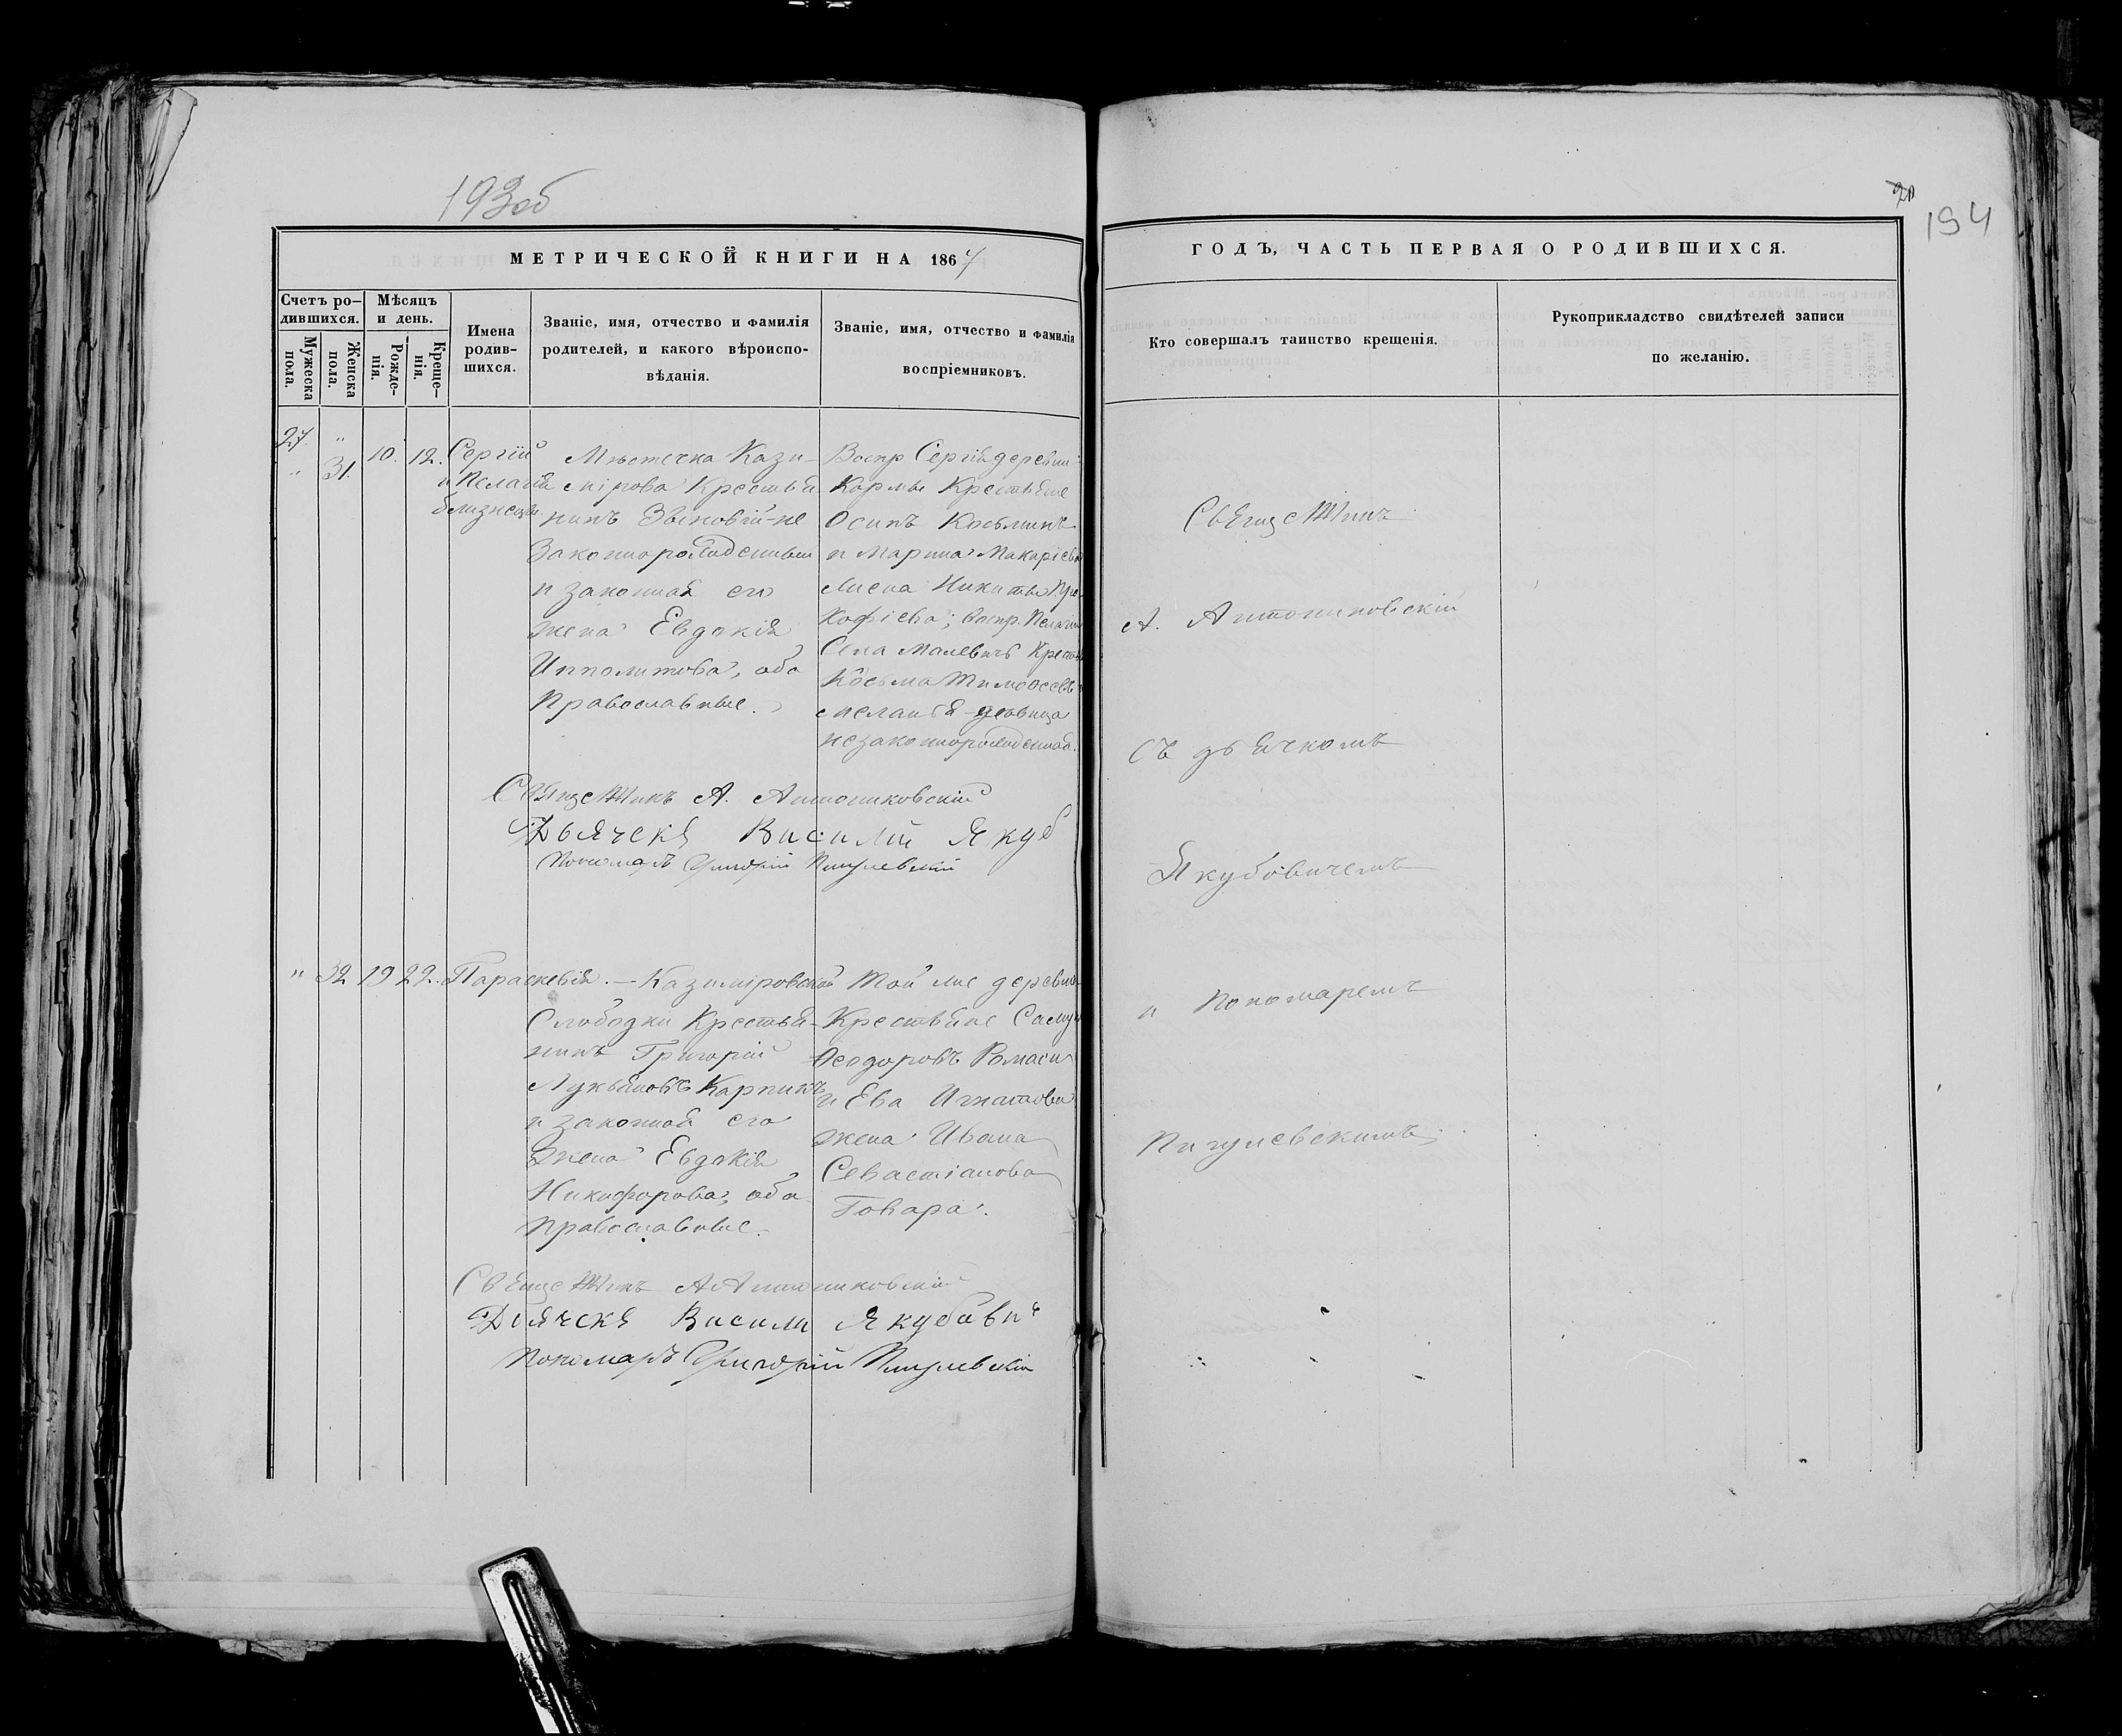 193об
МЕТРИЧЕСКОЙ КНИГИ НА 1864
Счетъ ро-
дившихся.
Мужеска
пола.
Женска
пола.
Мѣсяцъ
и день.
Рожде-
нія.
Креще-
нія.
Имена
родив-
шихся.
Званіе, имя, отчество и фамилія
родителей, и какого вѣроиспо-
вѣданія.
Званіе, имя, отчество и фамилія
воспріемниковъ.
27. "
" 31.
10. 12.
Сергій
и Пелагія
близнецы.
Мѣстечка Кази-
мірова Крестья-
нинъ Зѣновій-не
законнорожденный
и законная его
жена Евдокія
Ипполитова, оба
Православные.
Воспр Сергія деревни
Кормы Крестьяне
Осипъ Косьминъ
и Марина Макаріева
жена Никиты Про-
кофіева; воспр. Пелагіи
Села Малевичъ Крест
Косьма Тимоѳеевъ
Меланія девица
незаконнорожденная.
Священникъ А. Антониковскій
Дьячекъ Василій Якуб
Пономарь Григорій Пигулевскій
" 32 19 22.
Параскевія.
Казиміровской
Слободки Крестья-
нинъ Григорій
Лукьяновъ Карпинъ
и законная его
жена Евдокія
Никифорова, оба
православные.
Той же деревни
Крестьяне Саму
Ѳеодоровъ Романъ
и Ева Игнатова
жена Ивана
Севастіанова
Говара.
Священникъ А Антониковскій
Дьячекъ Васили Якубович
Пономарь Григорій Пигулевскій
20
194
ГОДЪ, ЧАСТЬ ПЕРВАЯ О РОДИВШИХСЯ.
Кто совершалъ таинство крещенія.
Рукоприкладство свидѣтелей записи
по желанію.
Священникъ
А. Антониковскій
съ дьячкомъ
Якубовичемъ
и Пономаремъ
Пигулевскимъ.